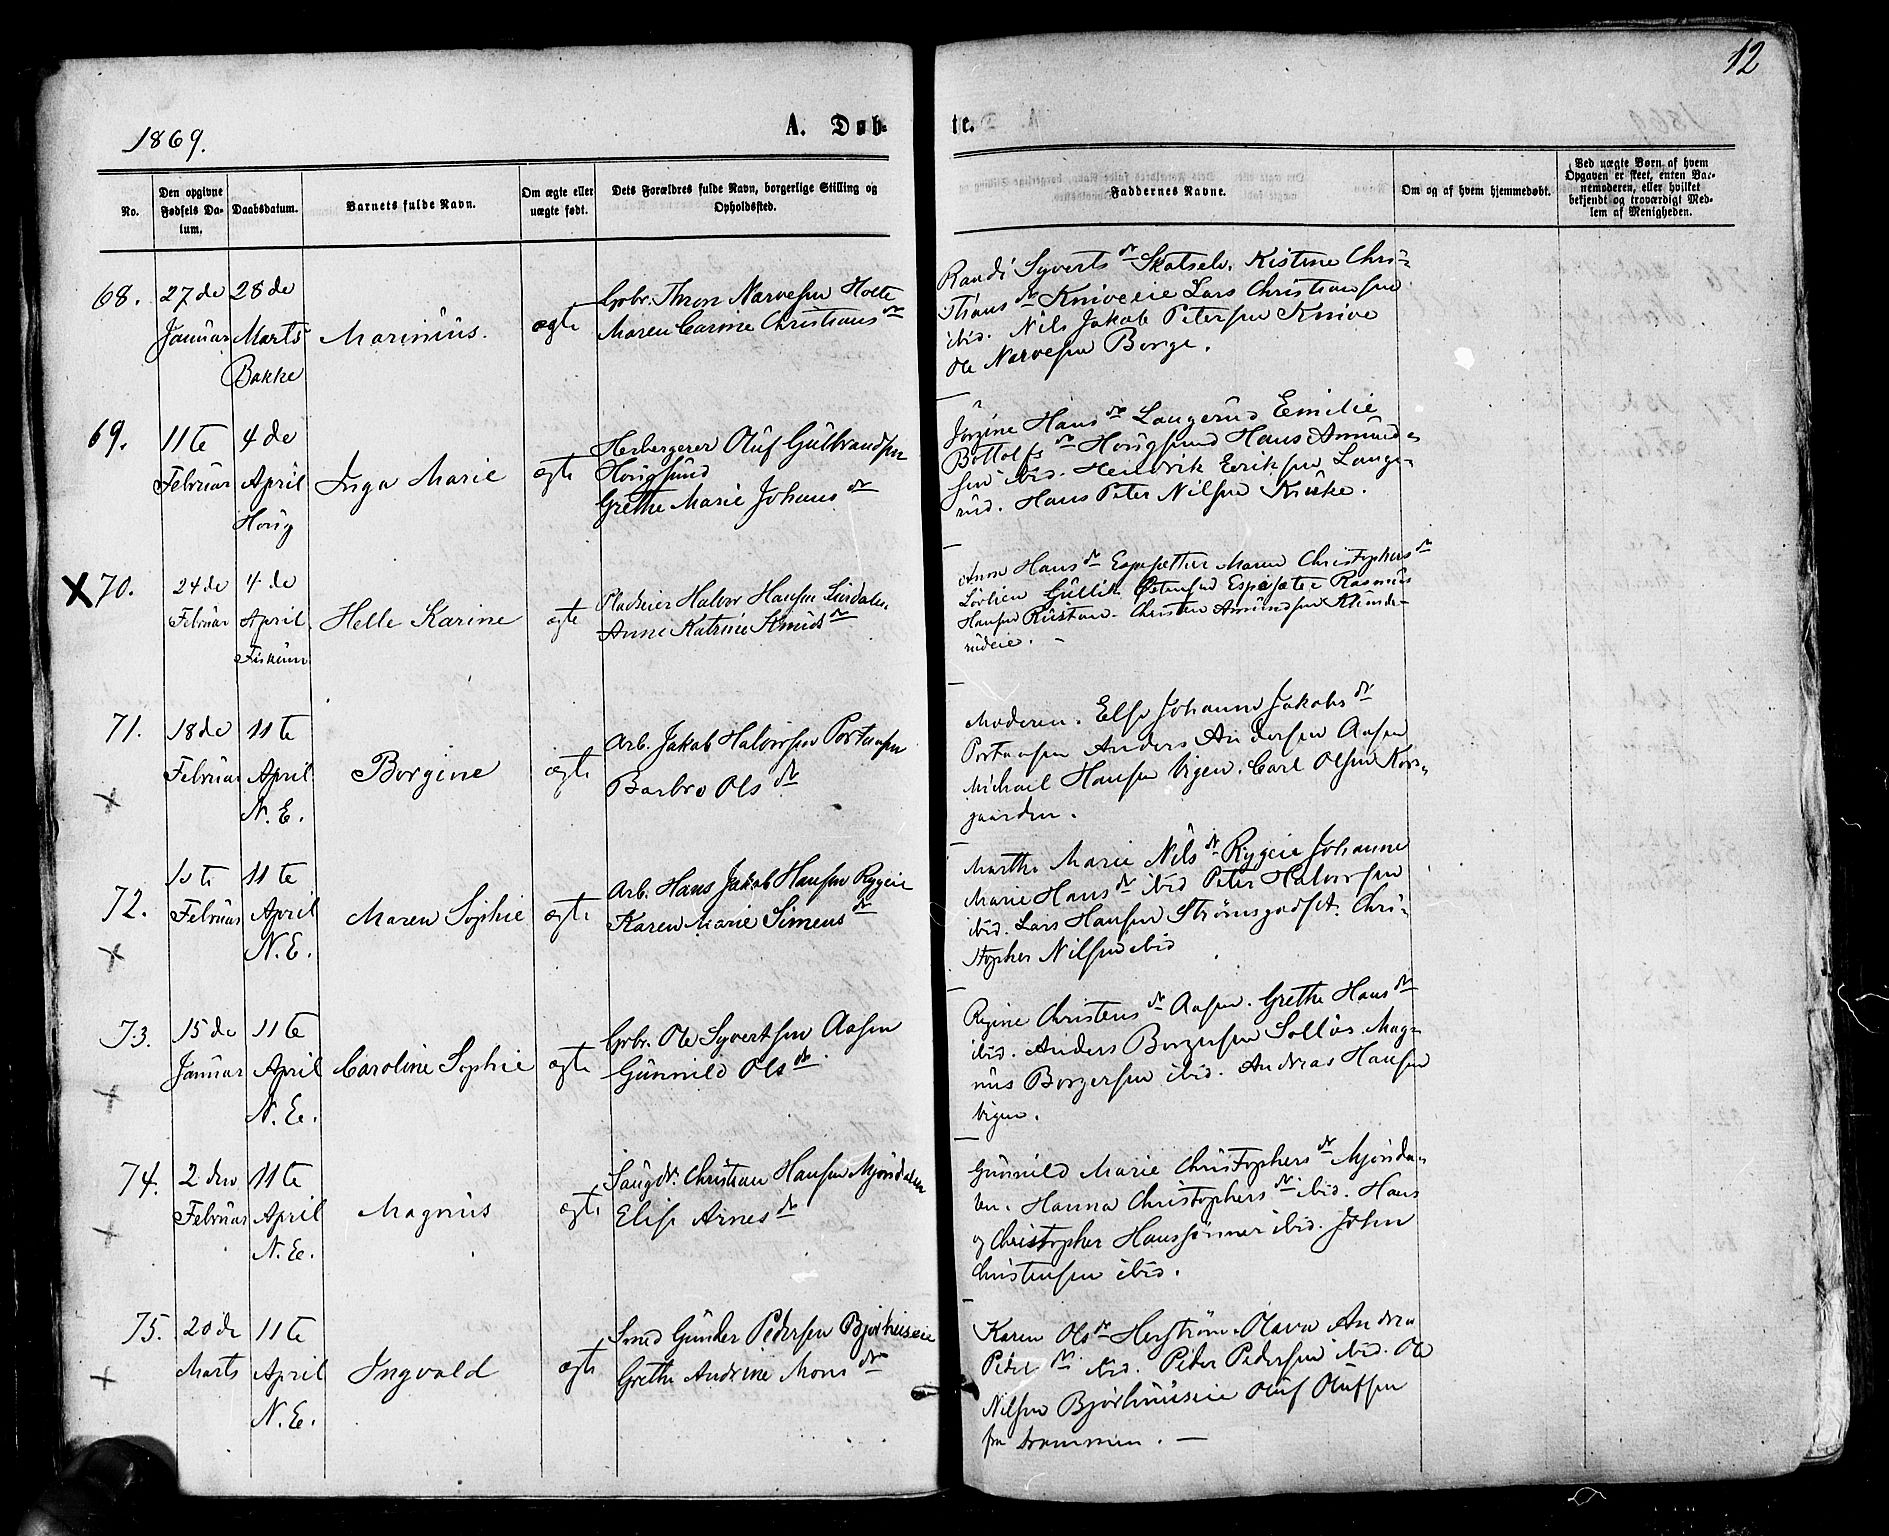 12
1869.
A. Døb-
te.
No.
Den opgivne Fødsels Da-
tum.
Daabsdatum.
Barnets fulde Navn.
Om ægte eller
uægte født.
Dets Forældres fulde Navn, borgerlige Stilling og
Opholdssted.
Faddernes Navne.
Om og af hvem hjemmedøbt.
Ved uægte Børn af hvem
Opgaven er skeet, enten Bar-
nemoderen, eller hvilket
bekjendt og troværdigt Med-
lem af Menigheden.
68.
27de
Januar
28de
Marts
Bakke
Marinius.
ægte
Gbr. Thron Narvesen Holte
Maren Carine Christians dr
Randi Syverts dr Skotselv. Kistine Chri-
stians dr Kniveeie Lars Christiansen
ibid. Nils Jakob Petersen Knive
Ole Narvesen Borge.
69.
11te
Februar
4de
April
Houg
Inga Marie
ægte
Herbergerer Oluf Gulbrandsen
Hougsund
Grethe Marie Johans dr
Jørgine Hans dr Langerud Emilie
Bottolfs dr Hougsund Hans Amund-
sen ibid. Hendrik Eriksen Lange-
rud. Hans Peter Nilsen Kruke.
X 70.
24de
Februar
4de
April
Fiskum
Helle Karine
ægte
Pladseier Halvor Hansen Lurdalen
Anne Katrine Knuds dr
Anne Hans dr Espesætter Maren Christophers dr
Løvlien Gullik Østensen Espesæter Rasmus
Hansen Rustan. Christen Amundsen Klunde-
rudeie. -
71.
18de
Februar
11te
April
N. E.
Borgine
ægte
Arb. Jakob Halvorsen Portaasen
Barbro Ols dr
Moderen. Else Johanne Jakobs dr
Portaasen Anders Andersen Aasen
Michael Hansen Vigen. Carl Olsen Kors-
gaarden.
72.
10te
Februar
11te
April
N. E.
Maren Sophie
ægte
Arb. Hans Jakob Hansen Rygeie
Karen Marie Simens dr
Marthe Marie Nils dr Rygeie Johanne
Marie Hans dr ibid Peter Halvorsen
ibid. Lars Hansen Strømsgodset. Chri-
stopher Nilsen ibid
73.
15de
Januar
11te
April
N. E.
Caroline Sophie
ægte
Gbr. Ole Syvertsen Aasen
Gunnild Ols dr
Regine Christens dr Aasen. Grethe Hans dr
ibid. Anders Borgersen Solløs. Mag-
nus Borgersen ibid. Andreas Hansen
Vigen.
74.
2den
Februar
11te
April
N. E.
Magnus
ægte
Saugdr. Christian Hansen Mjøndalen
Elise Arnes dr
Gunnild Marie Christophers dr Mjønda-
len. Hanna Christophers dr ibid. Hans
og Christopher Hanssønner ibid. John
Christensen ibid.
75.
20de
Marts
11te
April
N. E.
Ingvald
ægte
Smed Gunder Pedersen Bjørhuseie
Grethe Andrine Mons dr
Karen Ols dr Herstrøm. Olava Andrea
Peders dr ibid. Peder Pedersen ibid. Ole
Nilsen Bjørhuuseie Oluf Olufsen
fra Drammen. -